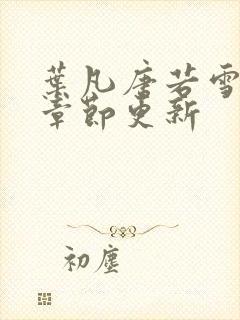 葉凡唐若雪
章節更新
初塵